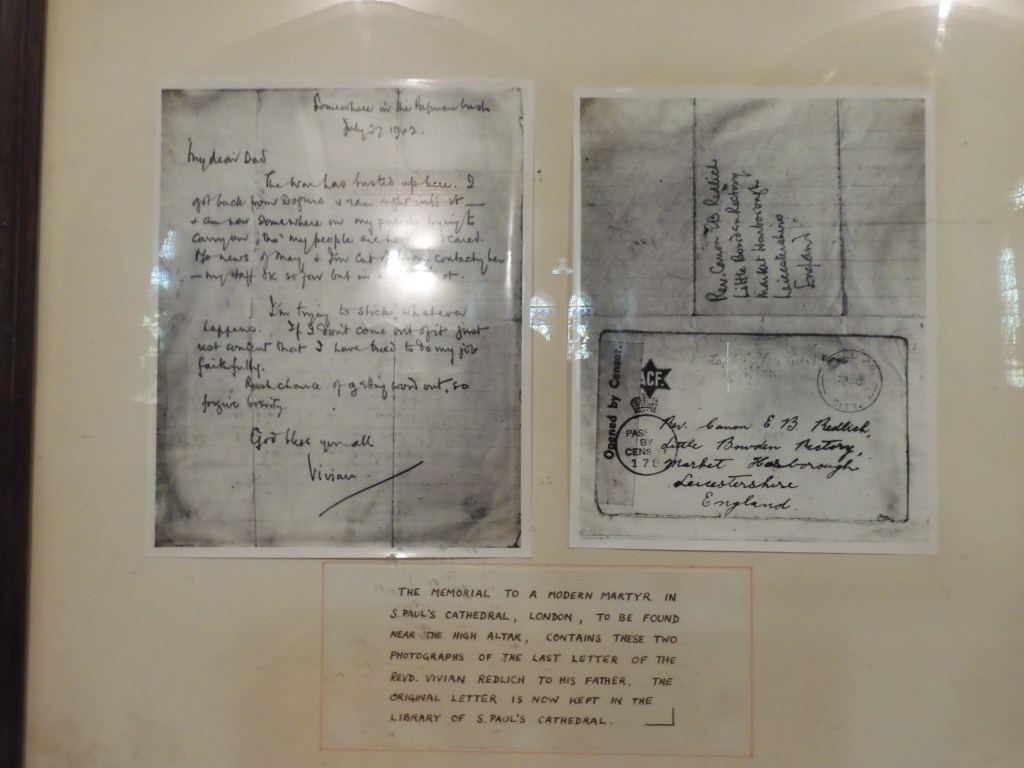 Somewhere in the Papuan bush
July 27 1942.
My dear Dad
The war has busted up here. I
got back from Dogura & ran right into it —
& am now somewhere in my parish trying to
carry on, tho' my people are scared.
No news of May & I'm cut off from contacting her
— my staff OK so far but in
I'm trying to stick whatever
happens. If I don't come out of it just
rest content that I have tried to do my job
faithfully.
chance of getting word out, so
forgive brevity.
God bless you all
Vivian
Rev. Canon EB Redlich
Little Bowden Rectory
Market Harborough
Leicestershire
England
Opened by Censor.
ACF.
PASS
BY
CENS
178
Rev. Canon E. B Redlich,
Little Bowden Rectory,
Market Harborough
Leicestershire
England.
THE MEMORIAL TO A MODERN MARTYR IN
S. PAUL'S CATHEDRAL, LONDON, TO BE FOUND
NEAR THE HIGH ALTAR, CONTAINS THESE TWO
PHOTOGRAPHS OF THE LAST LETTER OF THE
REVD. VIVIAN REDLICH TO HIS FATHER. THE
ORIGINAL LETTER IS NOW KEPT IN THE
LIBRARY OF S. PAUL'S CATHEDRAL.